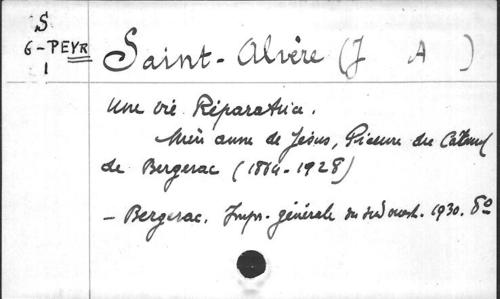 S
6-PEYR
1
Saint-Alvère (J A )
Une vie Réparatrice.
Mère Anne de Jésus, Prieure du Carmel
de Bergerac (1864-1928)
- Bergerac. Impr. générale du sud ouest. 1930. 8º